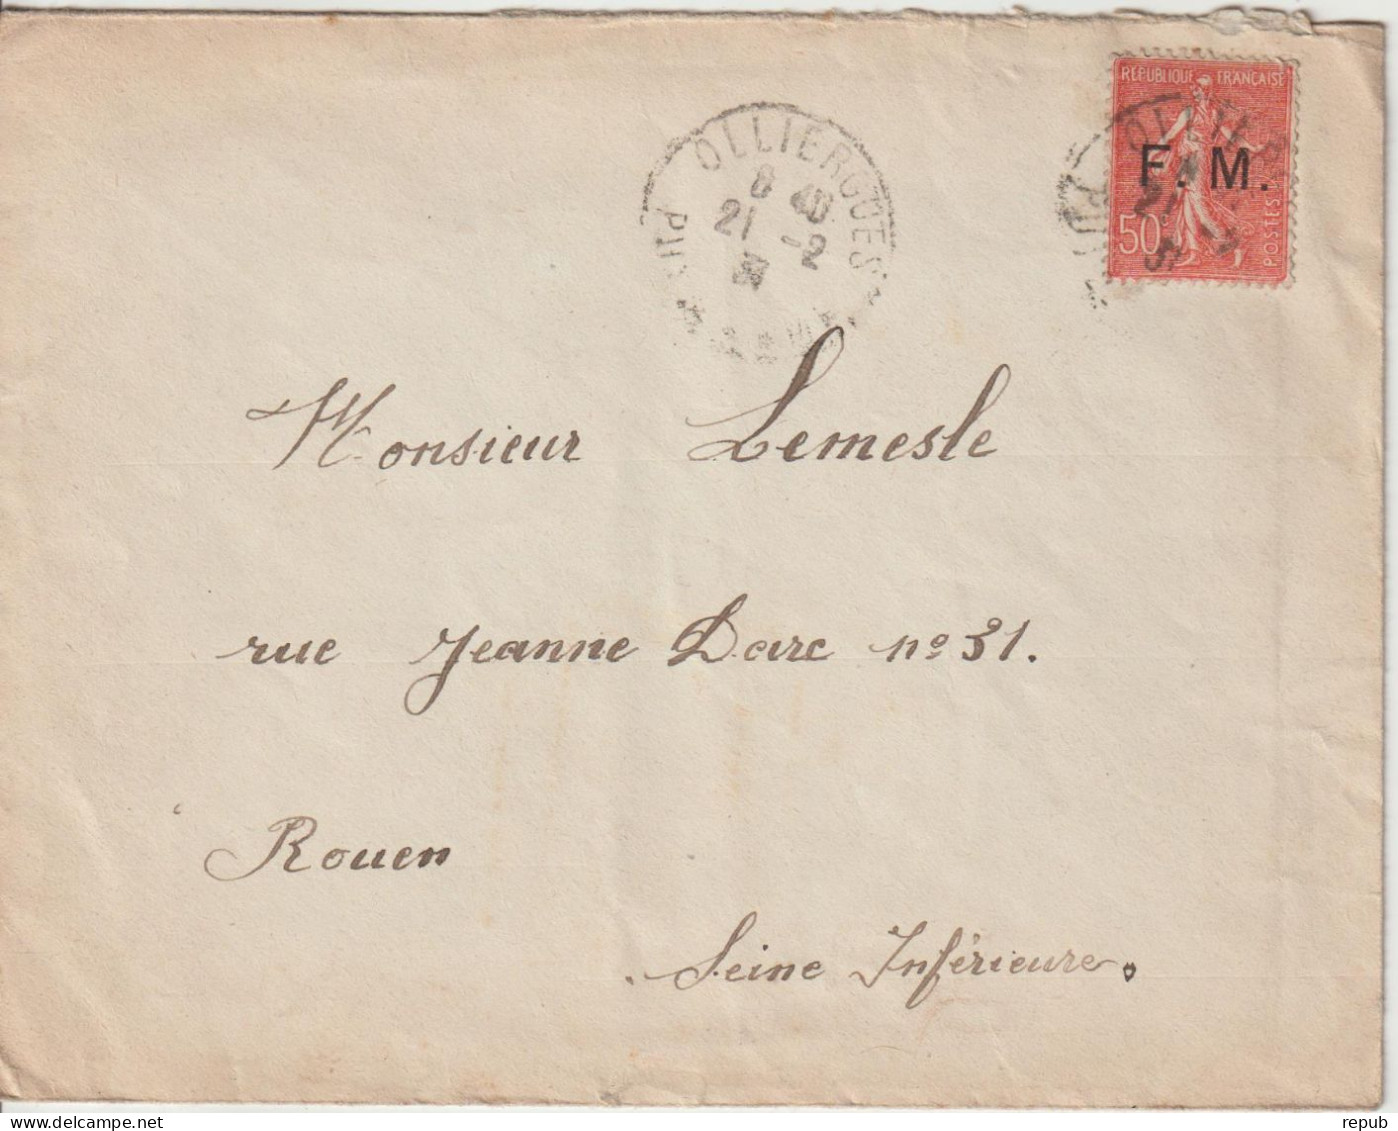 REPUBLIQUE FRANÇAISE
F. M.
50c
POSTES
OLLIERGUES
8 40
21 -2
31
PUY
Monsieur Lemesle
rue Jeanne Darc nº 31.
Rouen
Seine Inférieure.
repub